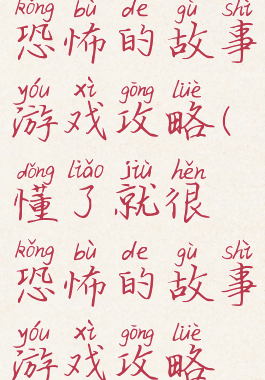 kǒng bù de gù shì
恐怖的故事
yóu xì gōng lüè
游戏攻略(
dǒng liǎo jiù hěn
懂了就很
kǒng bù de gù shì
恐怖的故事
yóu xì gōng lüè
游戏攻略